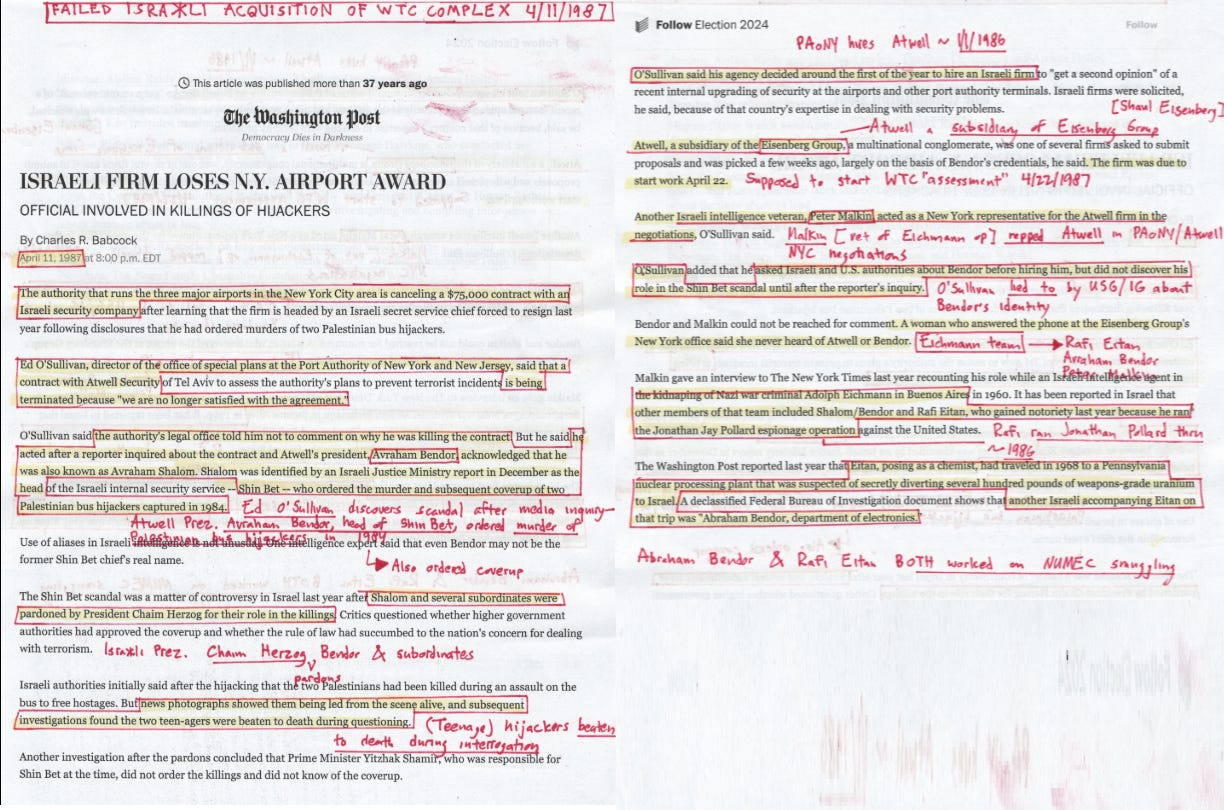 FAILED ISRAELI ACQUISITION OF WTC COMPLEX 4/11/1987
This article was published more than 37 years ago
The Washington Post
Democracy Dies in Darkness
ISRAELI FIRM LOSES N.Y. AIRPORT AWARD
OFFICIAL INVOLVED IN KILLINGS OF HIJACKERS
By Charles R. Babcock
April 11, 1987 at 8:00 p.m. EDT
The authority that runs the three major airports in the New York City area is canceling a $75,000 contract with an
Israeli security company after learning that the firm is headed by an Israeli secret service chief forced to resign last
year following disclosures that he had ordered murders of two Palestinian bus hijackers.
Ed O'Sullivan, director of the office of special plans at the Port Authority of New York and New Jersey, said that a
contract with Atwell Security of Tel Aviv to assess the authority's plans to prevent terrorist incidents is being
terminated because "we are no longer satisfied with the agreement."
O'Sullivan said the authority's legal office told him not to comment on why he was killing the contract. But he said he
acted after a reporter inquired about the contract and Atwell's president, Avraham Bendor, acknowledged that he
was also known as Avraham Shalom. Shalom was identified by an Israeli Justice Ministry report in December as the
head of the Israeli internal security service -- Shin Bet -- who ordered the murder and subsequent coverup of two
Palestinian bus hijackers captured in 1984.
Ed O'Sullivan discovers scandal after media inquiry—
Atwell Prez. Avraham Bendor, head of Shin Bet, ordered murder of
Palestinian bus hijackers in 1984
Use of aliases in Israeli intelligence is not unusual. One intelligence expert said that even Bendor may not be the
former Shin Bet chief's real name.
Also ordered coverup
The Shin Bet scandal was a matter of controversy in Israel last year after Shalom and several subordinates were
pardoned by President Chaim Herzog for their role in the killings. Critics questioned whether higher government
authorities had approved the coverup and whether the rule of law had succumbed to the nation's concern for dealing
with terrorism.
Israeli Prez. Chaim Herzog pardons Bendor & subordinates
Israeli authorities initially said after the hijacking that the two Palestinians had been killed during an assault on the
bus to free hostages. But news photographs showed them being led from the scene alive, and subsequent
investigations found the two teen-agers were beaten to death during questioning.
(Teenage) hijackers beaten
to death during interrogation
Another investigation after the pardons concluded that Prime Minister Yitzhak Shamir, who was responsible for
Shin Bet at the time, did not order the killings and did not know of the coverup.
Follow Election 2024
Follow
PAoNY hires Atwell ~ 1/1/1986
O'Sullivan said his agency decided around the first of the year to hire an Israeli firm to "get a second opinion" of a
recent internal upgrading of security at the airports and other port authority terminals. Israeli firms were solicited,
he said, because of that country's expertise in dealing with security problems.
[Shaul Eisenberg]
Atwell a subsidiary of Eisenberg Group
Atwell, a subsidiary of the Eisenberg Group, a multinational conglomerate, was one of several firms asked to submit
proposals and was picked a few weeks ago, largely on the basis of Bendor's credentials, he said. The firm was due to
start work April 22.
Supposed to start WTC "assessment" 4/22/1987
Another Israeli intelligence veteran, Peter Malkin, acted as a New York representative for the Atwell firm in the
negotiations, O'Sullivan said.
Malkin [vet of Eichmann op] repped Atwell in PAoNY/Atwell
NYC negotiations
O'Sullivan added that he asked Israeli and U.S. authorities about Bendor before hiring him, but did not discover his
role in the Shin Bet scandal until after the reporter's inquiry.
O'Sullivan lied to by USG/IG about
Bendor's identity
Bendor and Malkin could not be reached for comment. A woman who answered the phone at the Eisenberg Group's
New York office said she never heard of Atwell or Bendor.
Eichmann team
Rafi Eitan
Avraham Bendor
Peter Malkin
Malkin gave an interview to The New York Times last year recounting his role while an Israeli intelligence agent in
the kidnaping of Nazi war criminal Adolph Eichmann in Buenos Aires in 1960. It has been reported in Israel that
other members of that team included Shalom/Bendor and Rafi Eitan, who gained notoriety last year because he ran
the Jonathan Jay Pollard espionage operation against the United States.
Rafi ran Jonathan Pollard thru
~ 1986
The Washington Post reported last year that Eitan, posing as a chemist, had traveled in 1968 to a Pennsylvania
nuclear processing plant that was suspected of secretly diverting several hundred pounds of weapons-grade uranium
to Israel. A declassified Federal Bureau of Investigation document shows that another Israeli accompanying Eitan on
that trip was "Abraham Bendor, department of electronics."
Abraham Bendor & Rafi Eitan BOTH worked on NUMEC smuggling